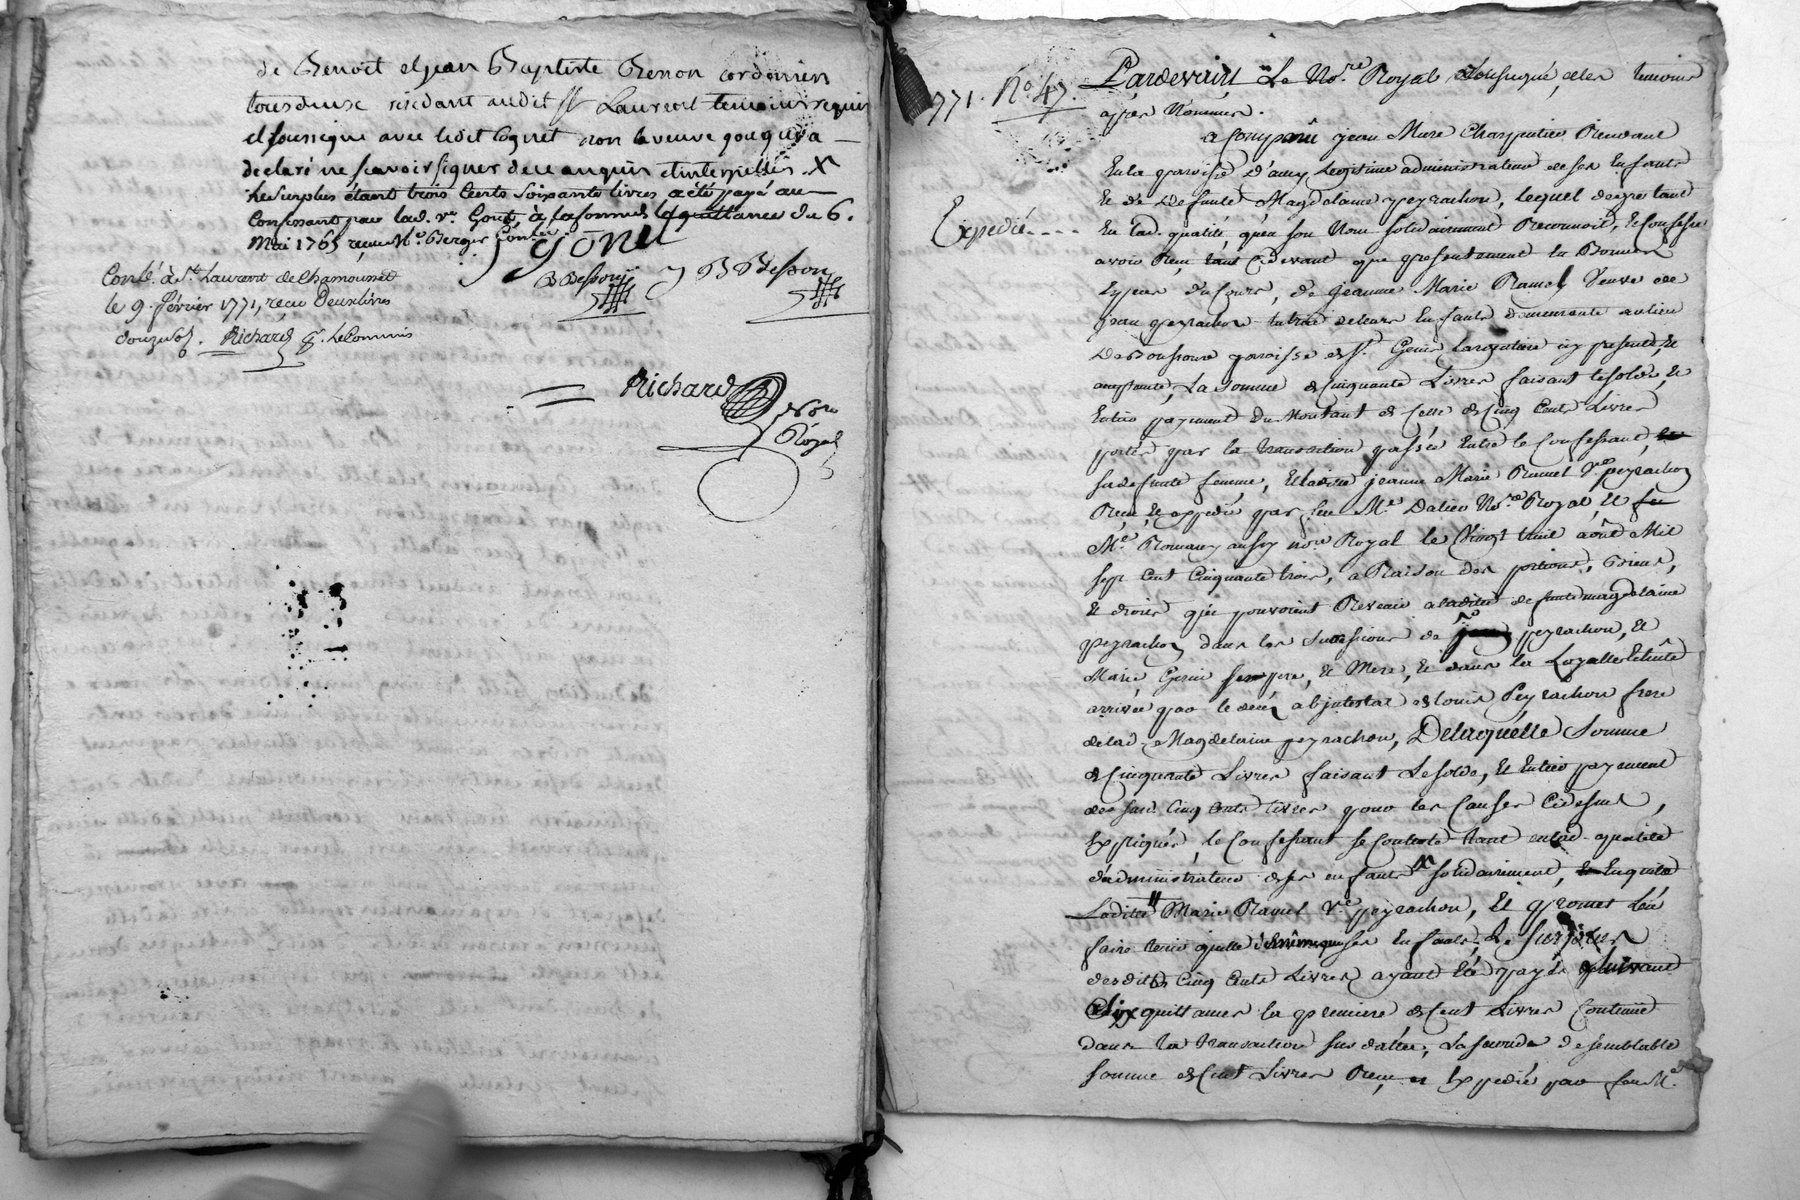 de Benoit et jean Baptiste Besson cordonniers
tous deux residant audit St Laurent temoins requis
et soussigné avec ledit Gonet non la veuve
declaré ne scavoir signer de ce enquis et interpellés. X
le surplus étant trois Cents soixante livres a été payé au
Confessant par lad. ve. Gout la quittance du 6.
Mai 1765 reçue Me. Berger
Gonet
B Besson B Besson
Conlé. à St. Laurent de Chamousset
le 9. février 1771, reçu Deux livres
douze s. Richard p. le Commis
Richard
Nore
Royal
1771. No. 47.
Expedié
Pardevant Le Nore. Royal soussigné, et les temoins
apres Nommés.
a Comparu jean Mure Charpentier Demeurant
En la paroisse d'aveize Legitime administrateur de ses Enfants
Et de Defunte Magdelaine peyrachon, Lequel de gré tant
En lad. qualité, qu'en son Nom solidairement Reconnoit, Et Confesse
avoir Reçu tant Cidevant que presentement En Bonnes
Especes du Cours, de jeanne Marie Ramel Veuve de
jean peyrachon tutrice de leurs Enfants demeurante au lieu
De paroisse de St. Genis Largentiere icy presente, Et
acceptante, La somme de Cinquante Livres faisant le solde, Et
Entier payement du Montant de Celle de Cinq Cents Livres
portée par la transaction passée Entre le Confessant,
sa defunte femme, Et ladite jeanne Marie Ramel ve. peyrachon
Reçu Et expedié par feu Me Dalier Nore. Royal, Et
Me. Romany aussy nore Royal le Vingt huit août Mil
sept Cent Cinquante trois, a Raison des portions, Biens,
Et droits qui pouvoient Revenir a ladite defunte magdelaine
peyrachon dans les Successions de peyrachon, Et
Marie Genin ses pere, Et Mere, Et dans la Loyalle Echute
arrivée par le decés abjntestat de Louis Peyrachon frere
de lad. Magdelaine peyrachon, De laquelle Somme
de Cinquante Livres faisant Le solde, Et Entier payement
desdits Cinq Cents Livres pour les Causes Cidessus,
Expliquées, le Confessant se Contente tant en lad. qualité
d'administrateur de ses enfants solidairement, En quitte
Ladite Marie Ramel Ve. peyrachon, Et promet L'en
faire tenir quitte Enfants, Le surplus
desdits Cinq Cents Livres ayant Eté payés suivant
dix quittances la premiere de Cent Livres Contenüe
dans La transaction sus datée, La seconde de semblable
somme de Cent Livres Reçu Et Expedié par feu Me.